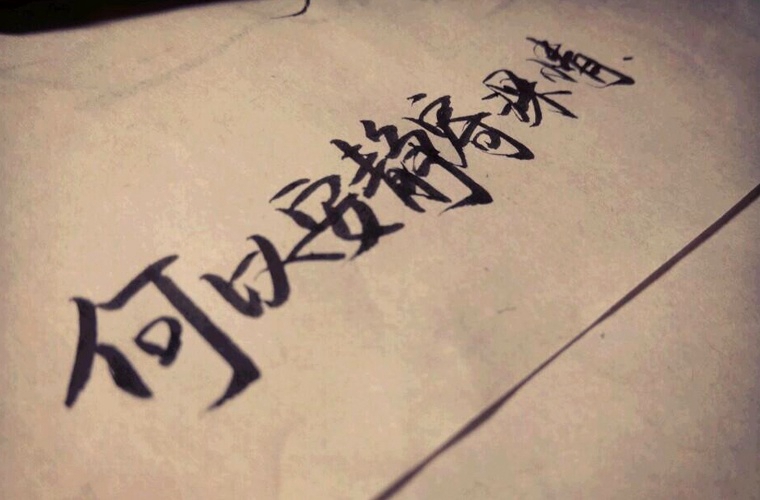 何以安静寄深情